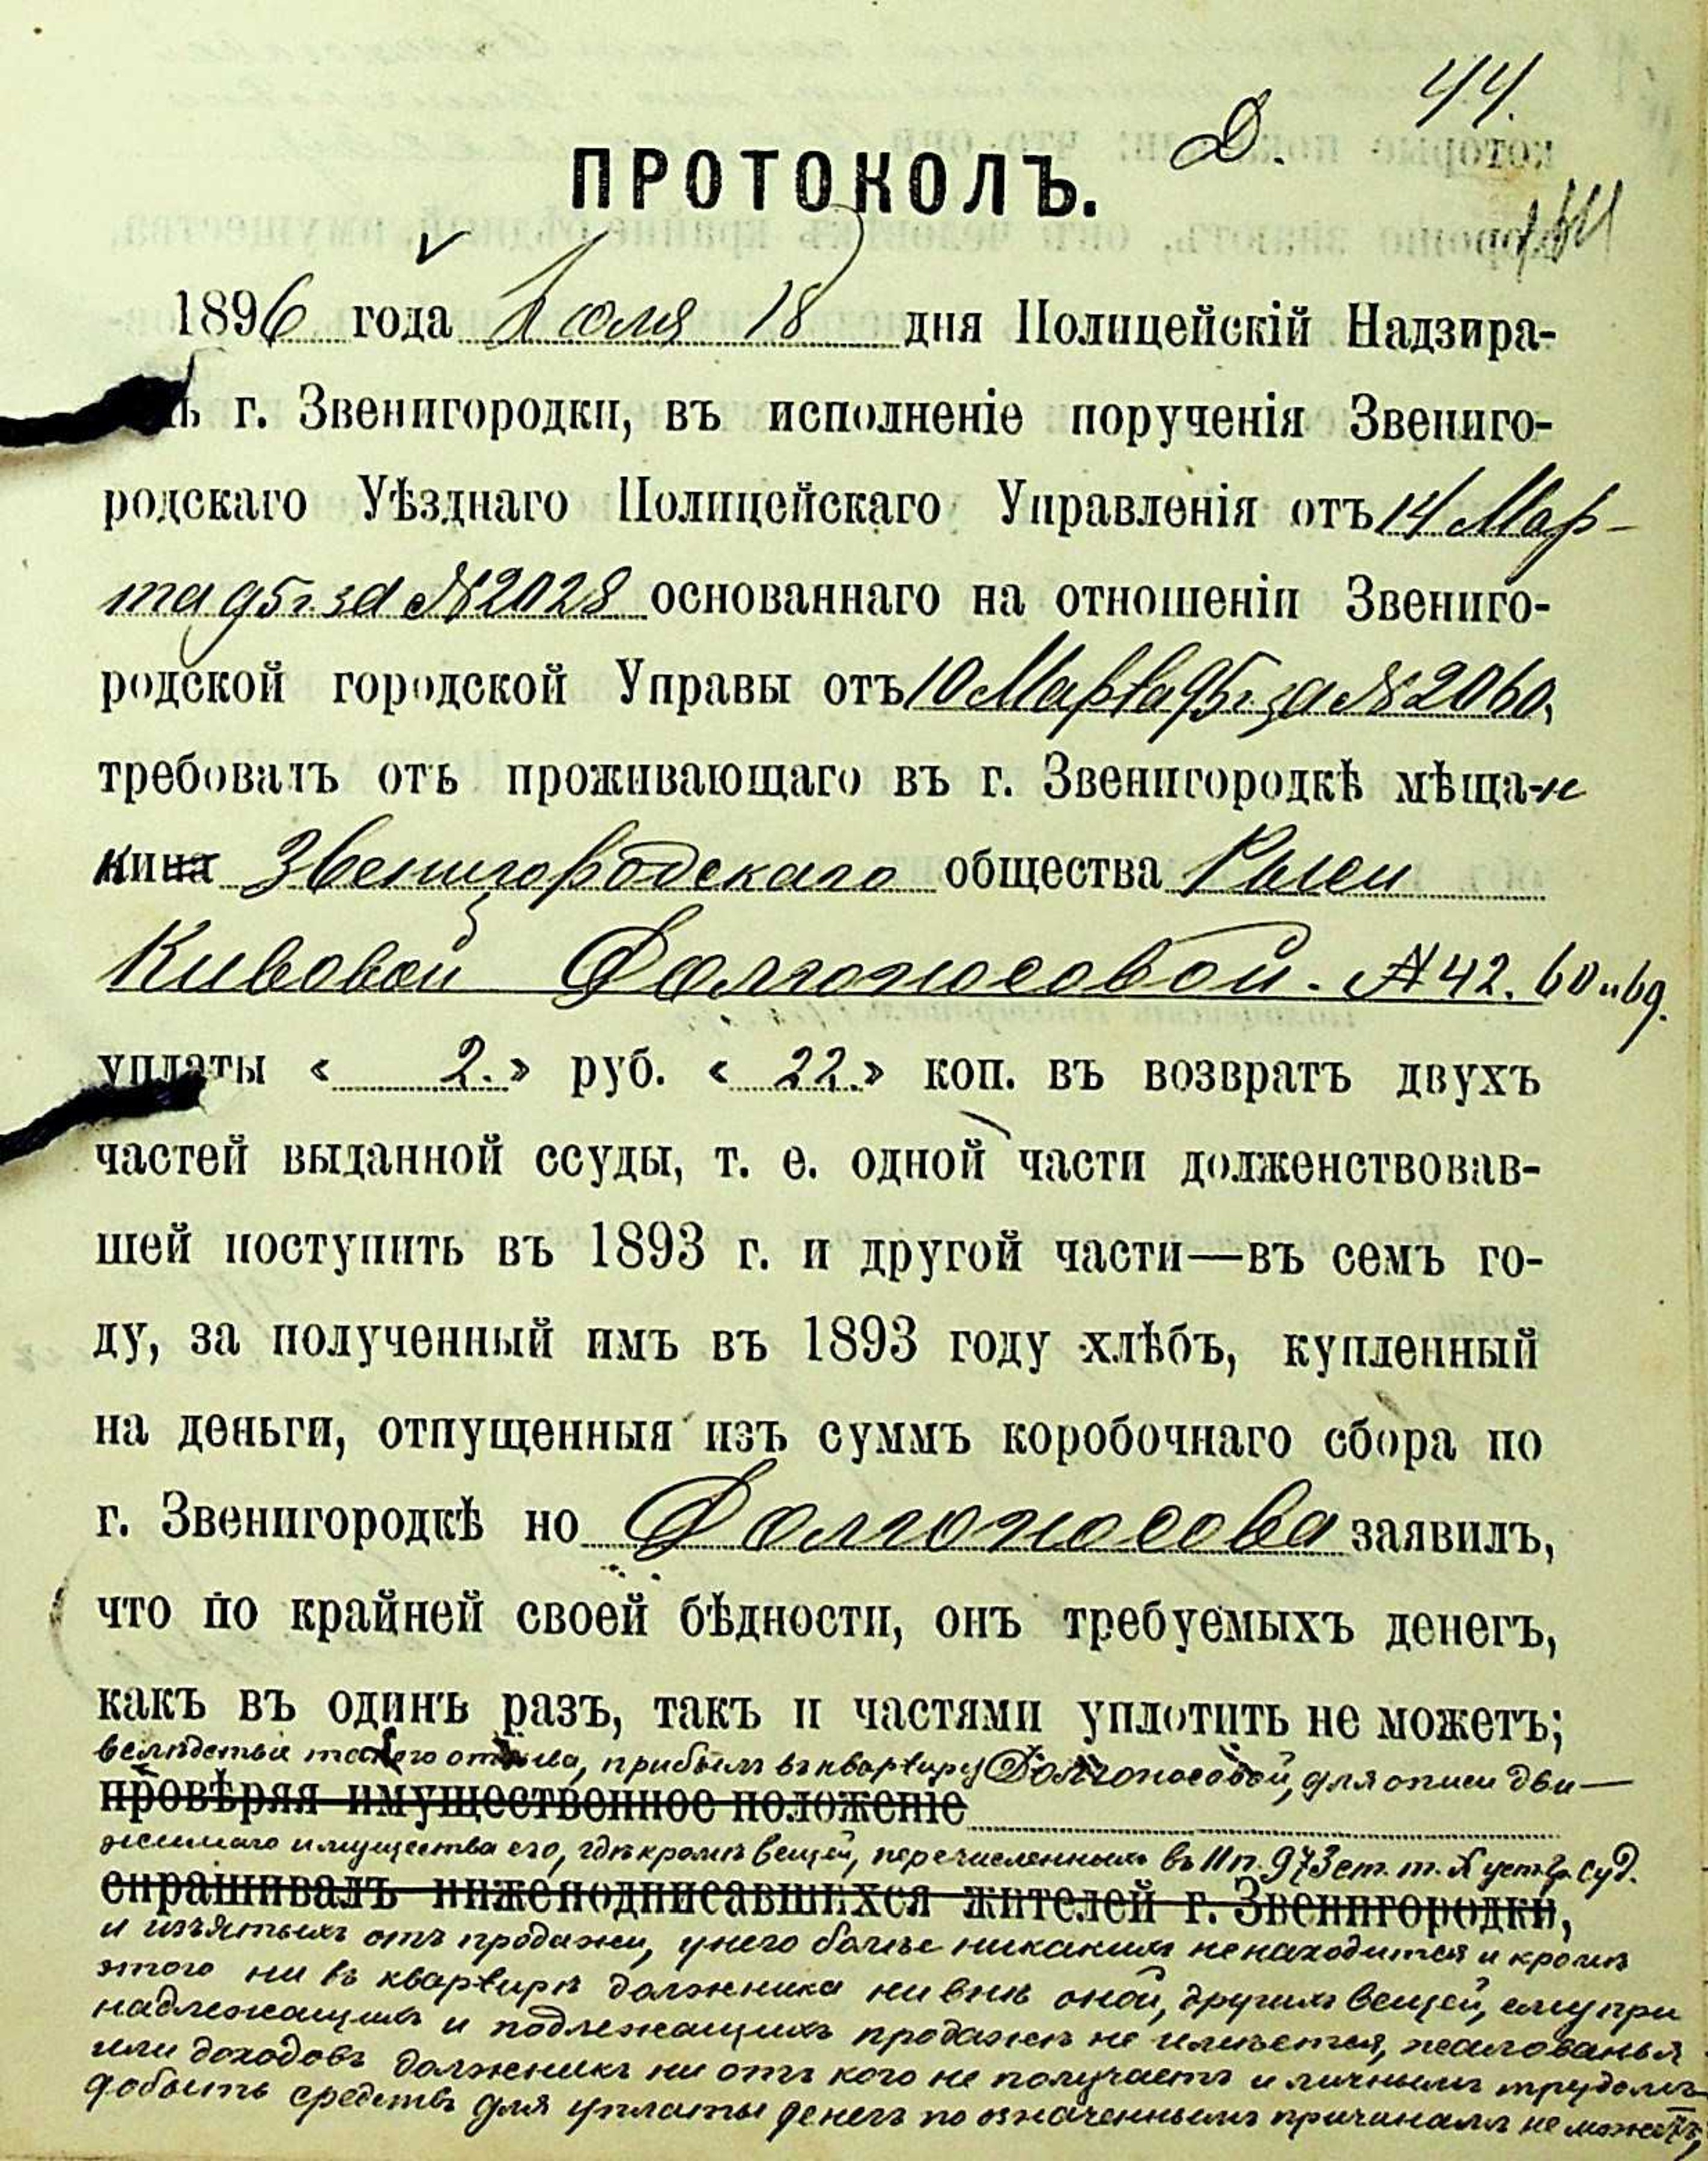 44.
Д.
ПРОТОКОЛЪ.
1896 года Іюля 18 дня Полицейскій Надзира-
ь г. Звенигородки, въ исполненіе порученія Звениго-
родскаго Уѣзднаго Полицейскаго Управленія отъ 14 Мар-
та 95 г. за № 2028 основаннаго на отношеніи Звениго-
родской городской Управы отъ 10 Марта 95 г. за № 2060,
требовалъ отъ проживающаго въ г. Звенигородкѣ мѣща-н
кина Звенигородскаго общества Рыси
Кивовой Долгоносовой. № 42. 60 и 69.
уплаты « 2. » руб. « 22. » коп. въ возвратъ двухъ
частей выданной ссуды, т. е. одной части долженствовав-
шей поступить въ 1893 г. и другой части—въ семъ го-
ду, за полученный имъ въ 1893 году хлѣбъ, купленный
на деньги, отпущенныя изъ суммъ коробочнаго сбора по
г. Звенигородкѣ но Долгоносова заявилъ,
что по крайней своей бѣдности, онъ требуемыхъ денегъ,
какъ въ одинъ разъ, такъ и частями уплотить не можетъ;
вслѣдствіе такого отзыва, прибылъ въ квартиру Долгоносовой, для описи дви-
провѣряя имущественное положеніе
жимаго имущества его, гдѣ кромѣ вещей, перечисленныхъ въ 11 п. 973 ст. т. X уст. гр. суд.
спрашивалъ нижеподписавшихся жителей г. Звенигородки,
и изъятыхъ отъ продажи, у него болѣе никакихъ не находится и кромѣ
этого ни въ квартирѣ должника ни внѣ оной, другихъ вещей, ему при
надлежащихъ и подлежащихъ продажѣ не имѣется, жалованья
или доходовъ должникъ ни отъ кого не получаетъ и личнымъ трудомъ
добыть средствъ для уплаты денегъ по означеннымъ причинамъ не можетъ,